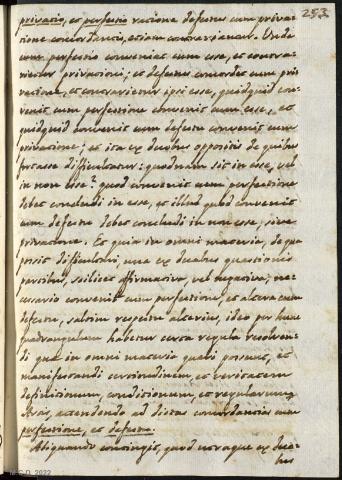 253
privatio, et perfectio ratione defectus cum priva-
tione concordantis, etiam contrarientur. Unde
cum perfectio conveniat cum esse, et contra-
rietur privationi; et defectus concordet cum pri-
vatione, et contrarietur ipsi esse, quidquid con-
venit cum perfectione convenit cum esse, et
quidquid convenit cum defectu convenit cum
privatione; et ita ex duobus oppositis de quibus
fortasse difficultatur: quodnam sit in esse, vel
in non esse? quod convenit cum perfectione
debet concludi in esse, et illud quod convenit
cum defectu debet concludi in non esse, sive
privatione. Et quia in omni materia, de qua
possit difficultari, una ex duabus quaestionis
partibus, scilicet affirmativa, vel negativa, ne-
cessario convenit cum perfectione, et altera cum
defectu, saltim respectu alterius, ideo per hunc
quadrangulum habetur certa regula resolven-
di quae in omni materia quaeri possunt, et
manifestandi certitudinem, et veritatem
definitionum, conditionum, et regularum
Artis, attendendo ad dictas concordantias cum
perfectione, et defectu.
Aliquando contingit, quod utraque ex dua-
bus
2022